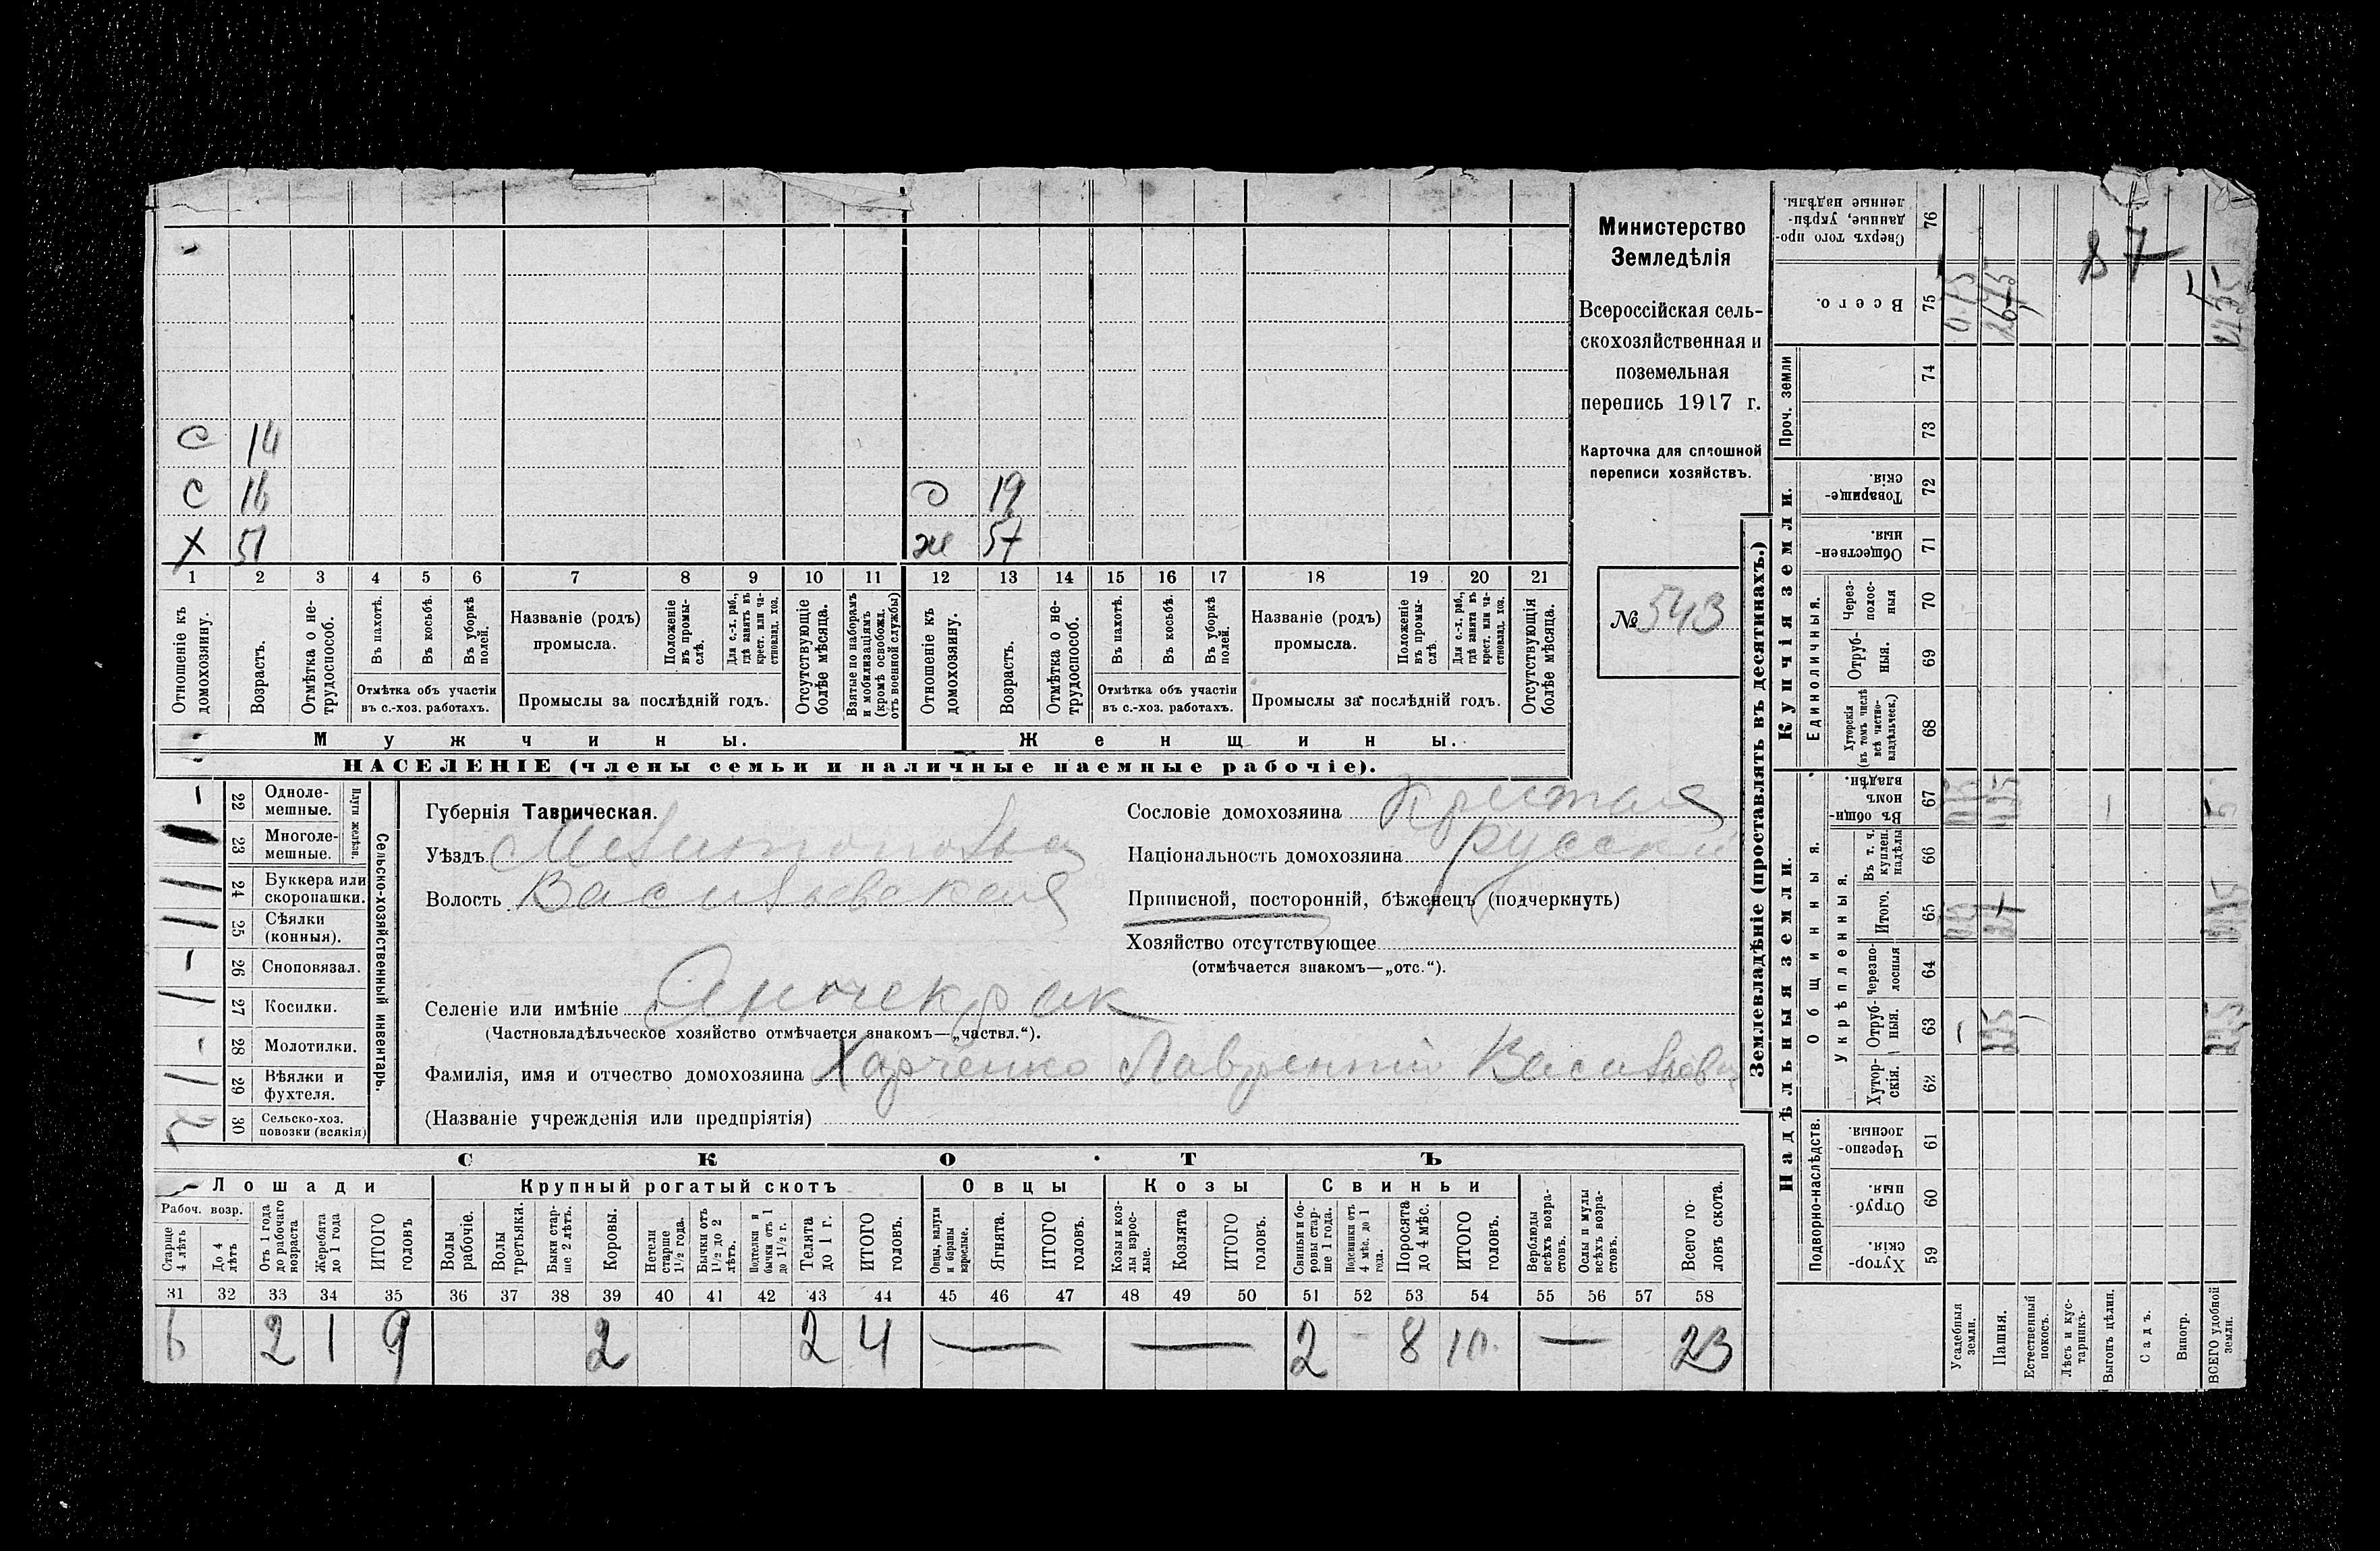 С 14
С 16
Х 51
19
ж 57
1 2 3 4 5 6 7 8 9 10 11 12 13 14 15 16 17 18 19 20 21
Отношеніе къ домохозяину.
Возрастъ.
Отмѣтка о не-трудоспособ.
Въ пахотѣ.
Въ косьбѣ.
Въ уборкѣ полей.
Отмѣтка объ участіи въ с.-хоз. работахъ.
Названіе (родъ) промысла.
Положеніе въ промы-слѣ.
Для с.-х. раб., гдѣ занятъ въ крест. или ча-стновлад. хоз.
Промыслы за послѣдній годъ.
Отсутствующіе болѣе мѣсяца.
Взятые по наборамъ и мобилизаціямъ (кромѣ освобожд. отъ военной службы)
Отношеніе къ домохозяину.
Возрастъ.
Отмѣтка о не-трудоспособ.
Въ пахотѣ.
Въ косьбѣ.
Въ уборкѣ полей.
Отмѣтка объ участіи въ с.-хоз. работахъ.
Названіе (родъ) промысла.
Положеніе въ промы-слѣ.
Для с.-х. раб., гдѣ занята въ крест. или ча-стновлад. хоз.
Промыслы за послѣдній годъ.
Отсутствующія болѣе мѣсяца.
Мужчины.
Женщины.
НАСЕЛЕНІЕ (члены семьи и наличные наемные рабочіе).
Министерство
Земледѣлія
Всероссійская сель-
скохозяйственная и
поземельная
перепись 1917 г.
Карточка для сплошной
переписи хозяйствъ.
№ 543
22 Одноле-мешные.
23 Многоле-мешные.
Плуги желѣзн.
24 Буккера или скоропашки.
25 Сѣялки (конныя).
26 Сноповязал.
27 Косилки.
28 Молотилки.
29 Вѣялки и фухтеля.
30 Сельско-хоз. повозки (всякія)
Сельско-хозяйственный инвентарь.
Губернія Таврическая.
Уѣздъ
Волость Васильевская
Селеніе или имѣніе Янчекрак
(Частновладѣльческое хозяйство отмѣчается знакомъ—„частвл.“).
Фамилія, имя и отчество домохозяина Харченко Лаврентій Васильев
(Названіе учрежденія или предпріятія)
Сословіе домохозяина
Національность домохозяина русскій
Приписной, посторонній, бѣженецъ (подчеркнуть)
Хозяйство отсутствующее
(отмѣчается знакомъ—„отс.“).
СКОТЪ
Лошади
Крупный рогатый скотъ
Овцы
Козы
Свиньи
Рабоч. возр.
Старше 4 лѣтъ
До 4 лѣтъ
Отъ 1 года до рабочаго возраста
Жеребята до 1 года
ИТОГО головъ
Волы рабочіе.
Волы третьяки.
Быки стар-ше 2 лѣтъ.
Коровы.
Нетели старше 1½ года.
Бычки отъ 1½ до 2 лѣтъ.
Подтелки и бычки отъ 1 до 1½ г.
Телята до 1 г.
ИТОГО головъ.
Овцы, валухи и бараны взрослые.
Ягнята.
ИТОГО головъ.
Козы и коз-лы взрос-лые.
Козлята
ИТОГО головъ.
Свиньи и бо-ровы стар-ше 1 года.
Подсвинки отъ 4 мѣс. до 1 года.
Поросята до 4 мѣс.
ИТОГО головъ.
Верблюды всѣхъ возра-стовъ.
Ослы и мулы всѣхъ возра-стовъ.
Всего го-ловъ скота.
31 32 33 34 35 36 37 38 39 40 41 42 43 44 45 46 47 48 49 50 51 52 53 54 55 56 57 58
6 2 1 9 2 2 4 — — 2 - 8 10. — 23
Землевладѣніе (проставлять въ десятинахъ.)
Надѣльныя земли.
Купчія земли.
Проч. земли
Подворно-наслѣдств.
Общинныя.
Укрѣпленныя.
Единоличныя.
Хутор-скія 59
Отруб-ныя. 60
Черезпо-лосныя. 61
Хутор-скія. 62
Отруб-ныя. 63
Черезпо-лосныя 64
Итого. 65
Въ т. ч. куплен. надѣлы 66
Въ общин-номъ владѣн. 67
Хуторскія (въ томъ числѣ всѣ частно-владѣльческ.) 68
Отруб-ныя. 69
Через-полос-ныя 70
Обществен-ныя. 71
Товарище-скія. 72
73
74
Всего. 75
Сверхъ того про-данные, укрѣп-ленные надѣлы. 76
87
Усадебныя земли.
Пашня.
Естественный покосъ.
Лѣсъ и кус-тарникъ.
Выгонъ цѣлин.
Садъ.
Виногр.
ВСЕГО удобной земли.